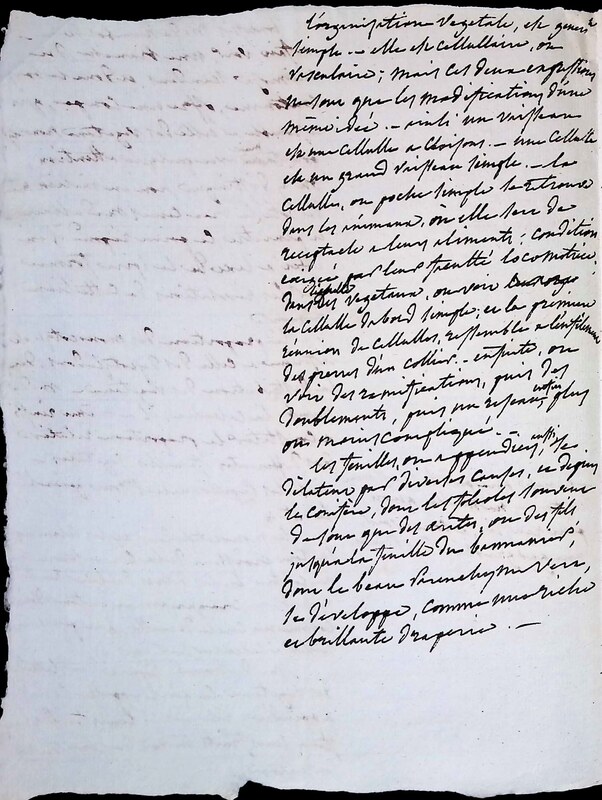 l'organisation vegetale, est general
simple. – elle est cellullaire, ou
vasculaire; mais ces deux expressions
ne sont que les modifications d'une
même idée. – ainsi un vaisseau
est une cellulle a cloisons. – une cellulle
est un grand vaisseau simple. – la
cellulle, ou poche simple se retrouve
dans les animaux, où elle sert de
receptacle a leurs aliments; condition
exigée par leur faculté locomotrice.
dans les vegetaux, on voit
la cellulle dabord simple; et la premiere
réunion de cellulles, ressemble a l'enfilement
des pierres d'un collier. – ensuite, on
voit des ramifications, puis des
doublements, puis un reseau, plus
ou moins compliqué. –
les feuilles, ou appendices, aussi, se
dilatent par diverses causes, et depuis
le conifere, dont les folioles souvent
ne sont que des aretes, ou des fils
jusqu'a la feuille du bannanier,
dont le beau Parenchyme vert,
se développe, comme une riche
et brillante draperie. –